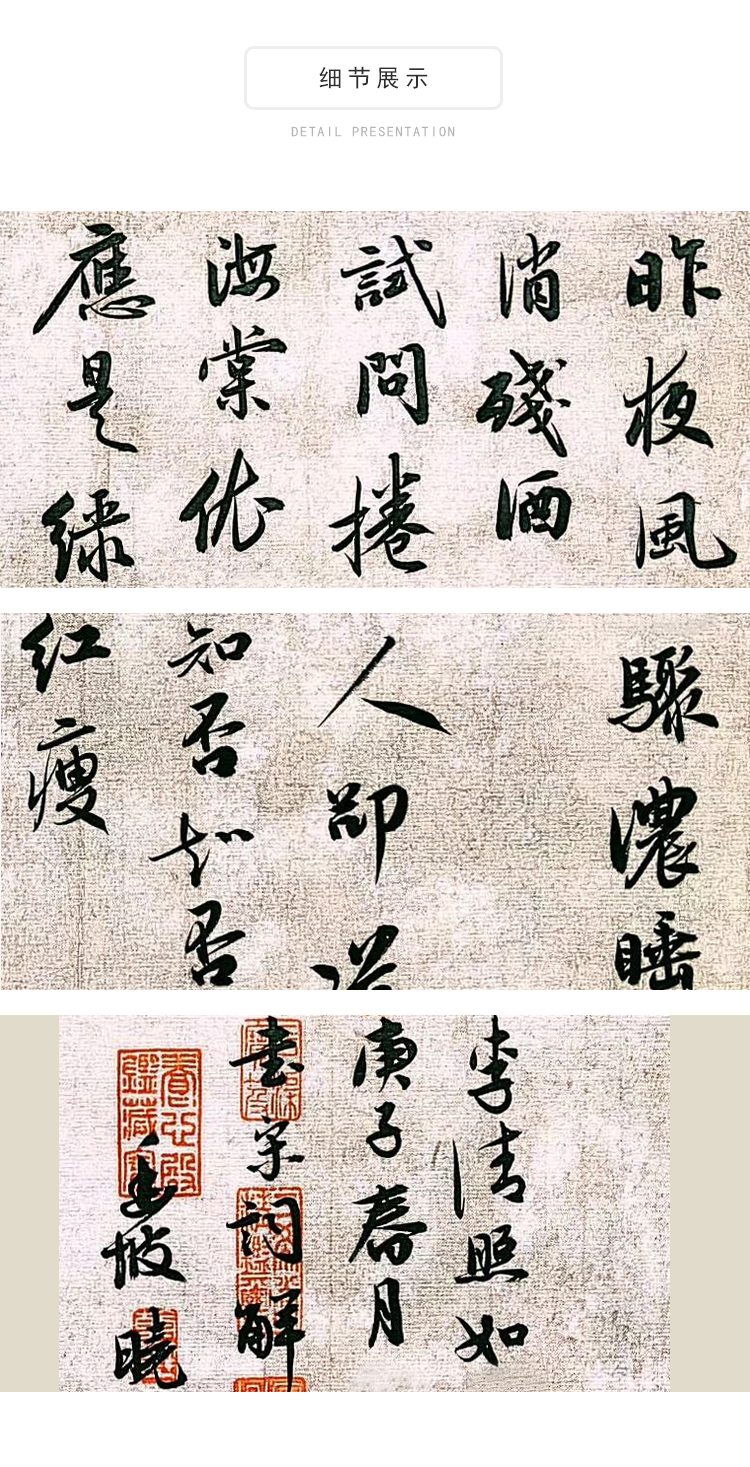 细节展示
DETAIL PRESENTATION
昨夜風
消殘酒
試問捲
海棠依
應是綠
驟濃睡
人卻道
知否知否
紅瘦
李清照如
庚子春月
書宋詞解
坡曉
養心殿
鑑藏寶